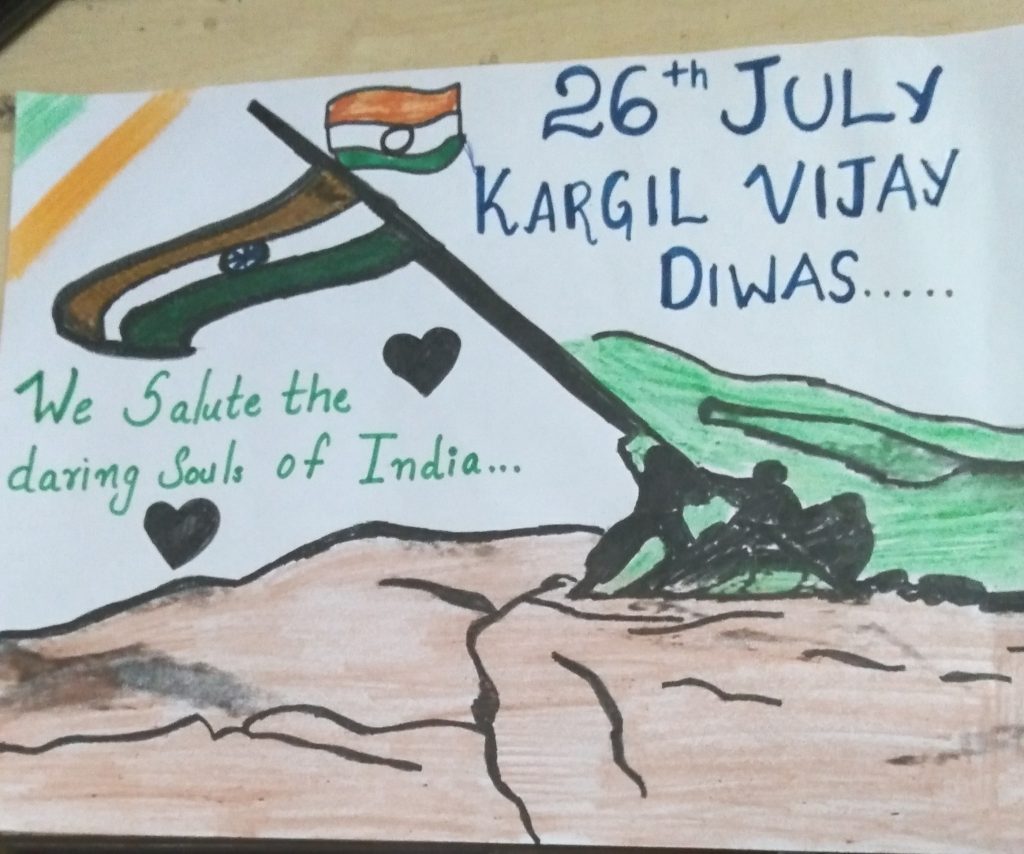 26th JULY
KARGIL VIJAY
DIWAS.....
We Salute the
daring Souls of India...